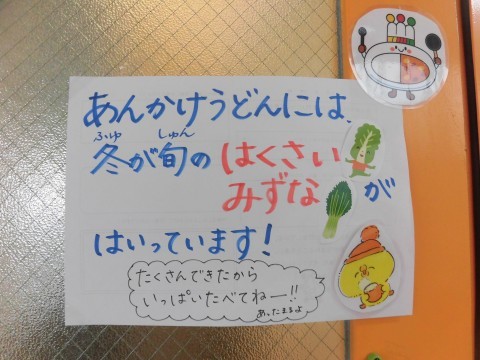 あんかけうどんには、
冬が旬の はくさい
ふゆ しゅん
みずな が
はいっています!
たくさんできたから
いっぱいたべてねー!!
あったまるよ